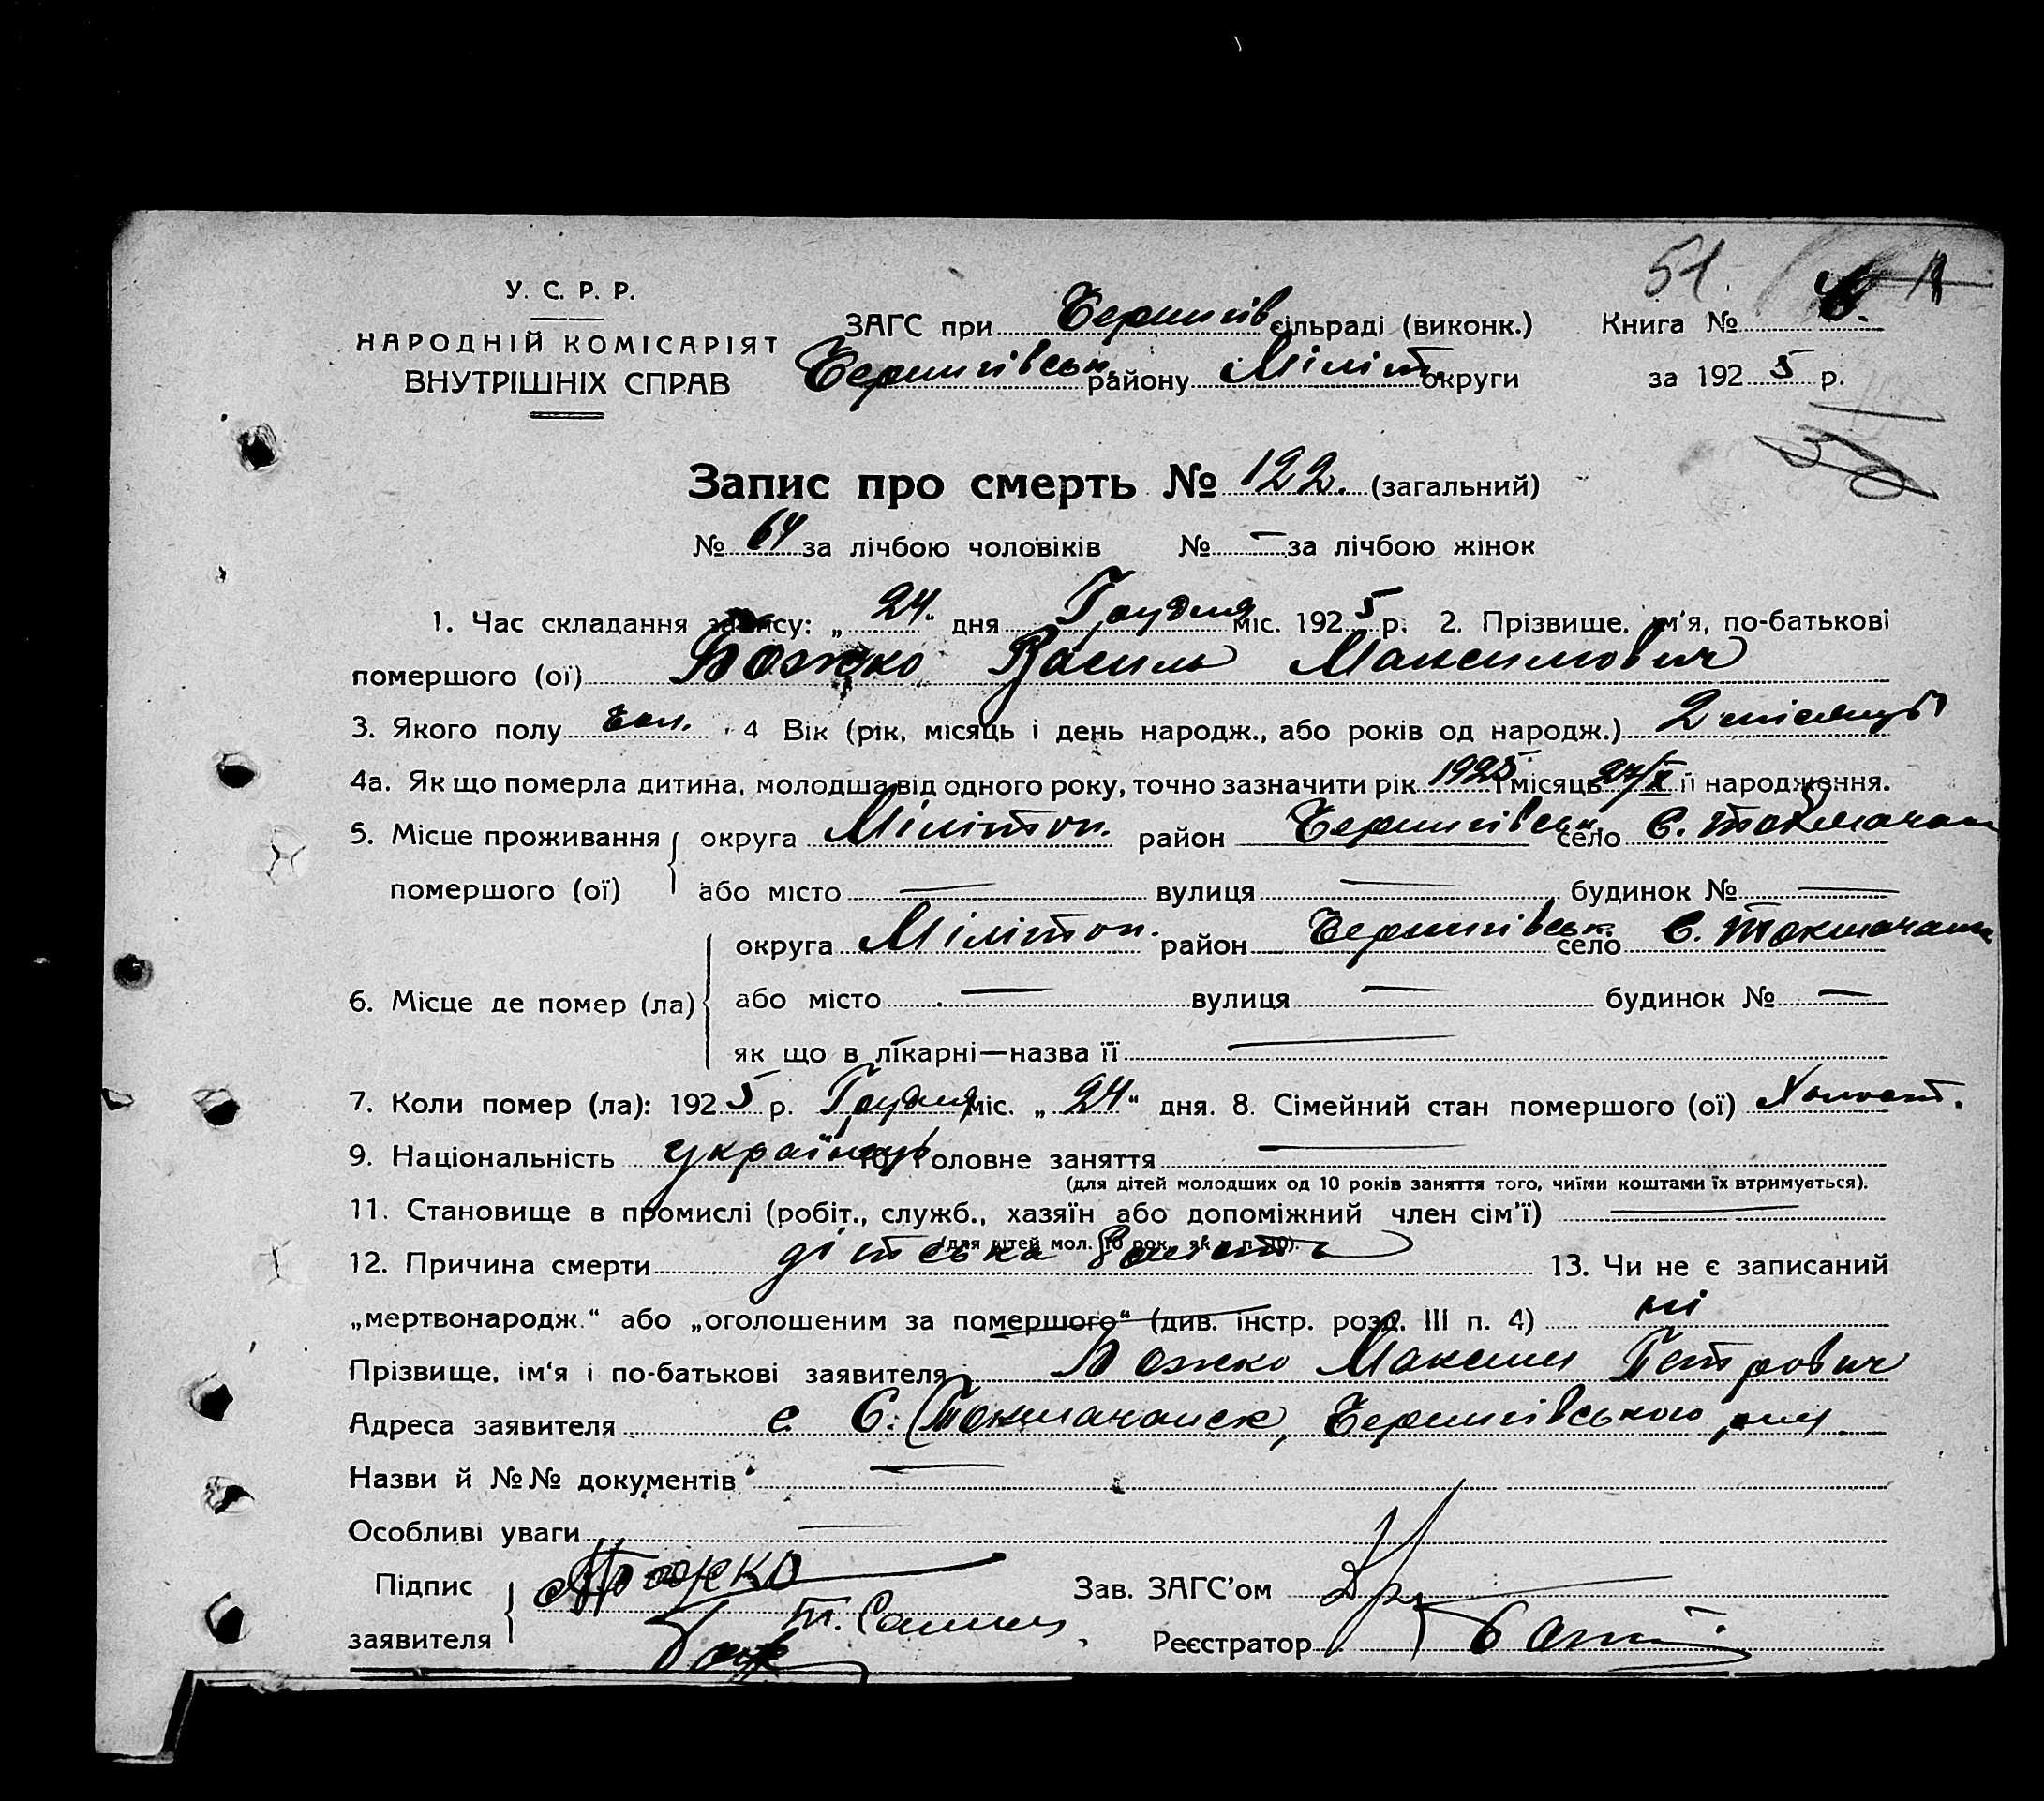 51.
У. С. Р. Р.
НАРОДНІЙ КОМІСАРІЯТ
ВНУТРІШНІХ СПРАВ
ЗАГС при Чернигів сільраді (виконк.) Книга №
Чернигівськ. району Міліт. округи за 1925 р.
Запис про смерть № 122. (загальний)
№ 64 за лічбою чоловіків № — за лічбою жінок
1. Час складання запису: „24“ дня Грудня міс. 1925 р. 2. Прізвище, ім'я, по-батькові
помершого (ої) Божко Василь Максимович
3. Якого полу чол. 4 Вік (рік, місяць і день народж., або років од народж.) 2 місяць
4а. Як що померла дитина, молодша від одного року, точно зазначити рік 1925 і місяць 24/X її народження.
5. Місце проживання округа Мілітоп. район Чернигівськ. село С. Токмачанск
помершого (ої) або місто — вулиця — будинок № —
округа Мілітоп. район Чернигівськ. село С. Токмачанск
6. Місце де помер (ла) або місто — вулиця — будинок № —
як що в лікарні—назва її —
7. Коли помер (ла): 1925 р. Грудня міс. „24“ дня. 8. Сімейний стан помершого (ої) Холост.
9. Національність українець 10. Головне заняття —
(для дітей молодших од 10 років заняття того, чиїми коштами їх втримується).
11. Становище в промислі (робіт., служб., хазяїн або допоміжний член сім'ї) —
(для дітей мол. 10 рок. як в п. 10).
12. Причина смерти дітська болість 13. Чи не є записаний
„мертвонародж.“ або „оголошеним за помершого“ (див. інстр. розд. III п. 4) ні
Прізвище, ім'я і по-батькові заявителя Божко Максим Петрович
Адреса заявителя с. С. Токмачанск, Чернигівського р-ну
Назви й №№ документів —
Особливі уваги —
Підпис Божко Зав. ЗАГС'ом
заявителя Реєстратор